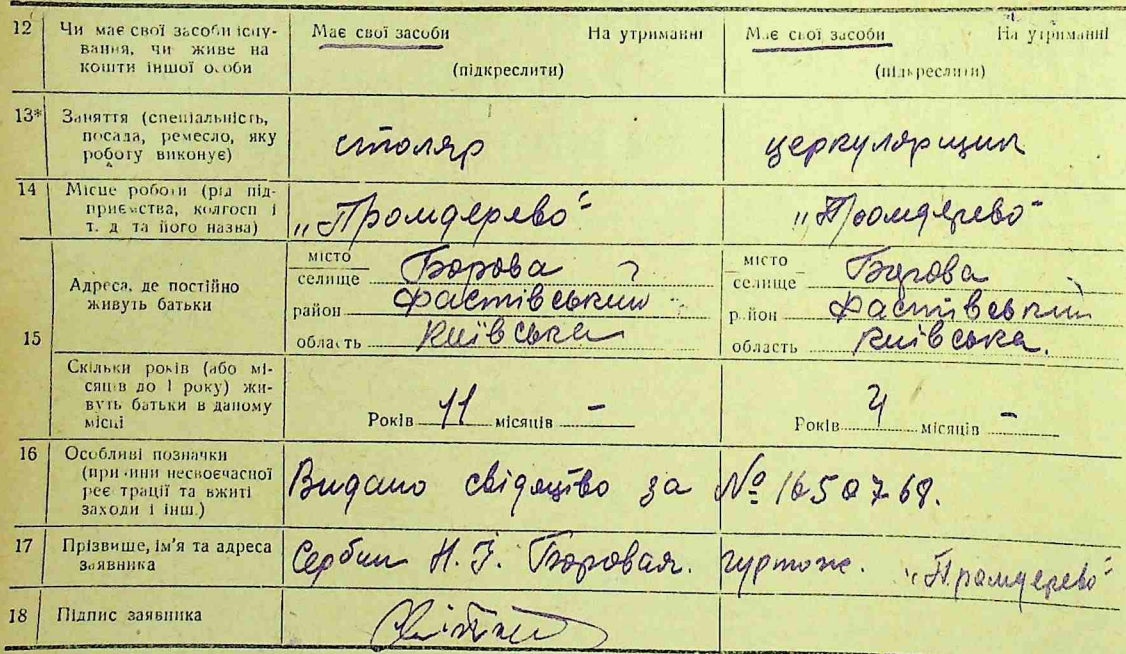 12 Чи має свої засоби існу-
вання, чи живе на
кошти іншої особи
Має свої засоби На утриманні
(підкреслити)
Має свої засоби На утриманні
(підкреслити)
13* Заняття (спеціальність,
посада, ремесло, яку
роботу виконує)
столяр
церкулярщик
14 Місце роботи (рід під-
приємства, колгосп і
т. д та його назва)
„Промдерево"
„Промдерево"
15 Адреса, де постійно
живуть батьки
місто
селище Борова
район Фастівський
область Київська
місто
селище Борова
район Фастівський
область Київська.
Скільки років (або мі-
сяців до 1 року) жи-
вуть батьки в даному
місці
Років 11 місяців –
Років місяців –
16 Особливі позначки
(причини несвоєчасної
реєстрації та вжиті
заходи і інш.)
Видано свідяцтво за № 1650768.
17 Прізвище, ім'я та адреса
заявника
Сербин Н. Боровая. гуртож. „Промдерево"
18 Підпис заявника